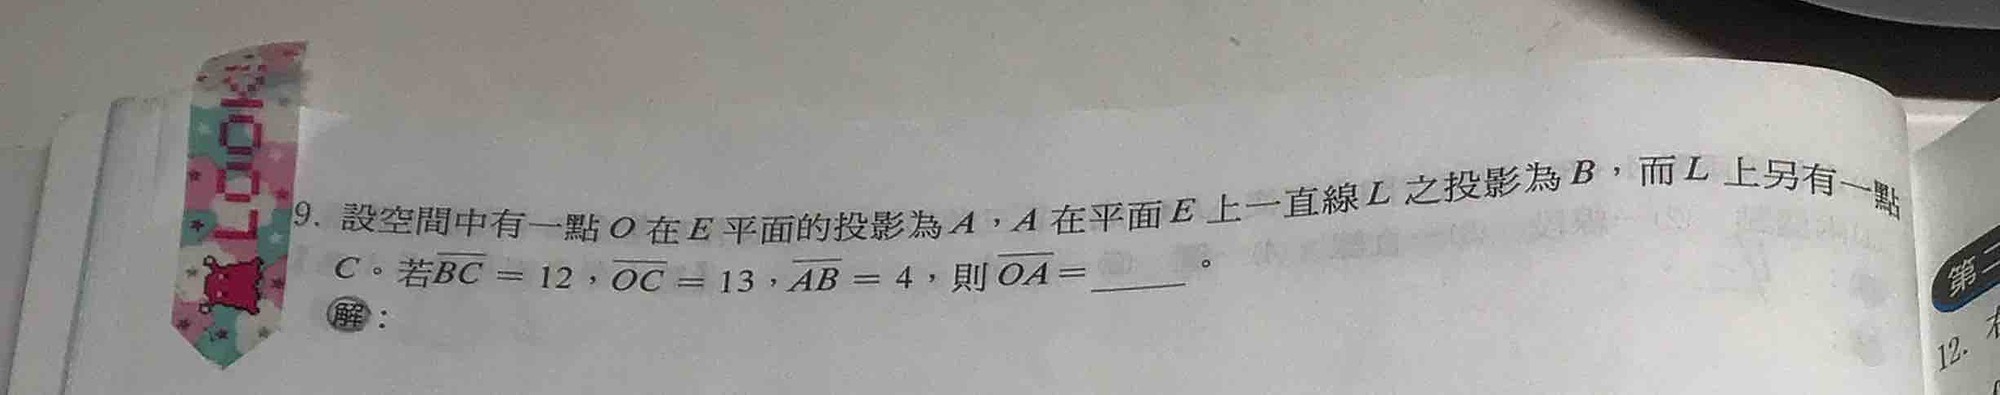 9. 設空間中有一點 O 在 E 平面的投影為 A，A 在平面 E 上一直線 L 之投影為 B，而 L 上另有一點
C。若 \overline{BC} = 12，\overline{OC} = 13，\overline{AB} = 4，則 \overline{OA} = ______。
解：
第二
12.